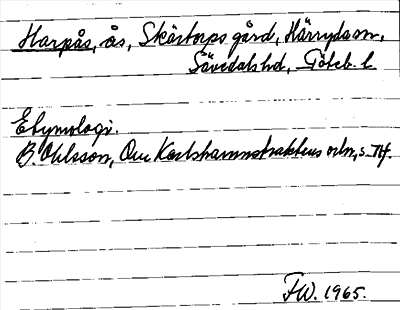 Harpås, ås, Skårtorps gård, Härryda sn,
Sävedals hd, Göteb. l.
Etymologi.
B. Ohlsson, Om Karlshamnstraktens ortn, s. 74f.
FW. 1965.